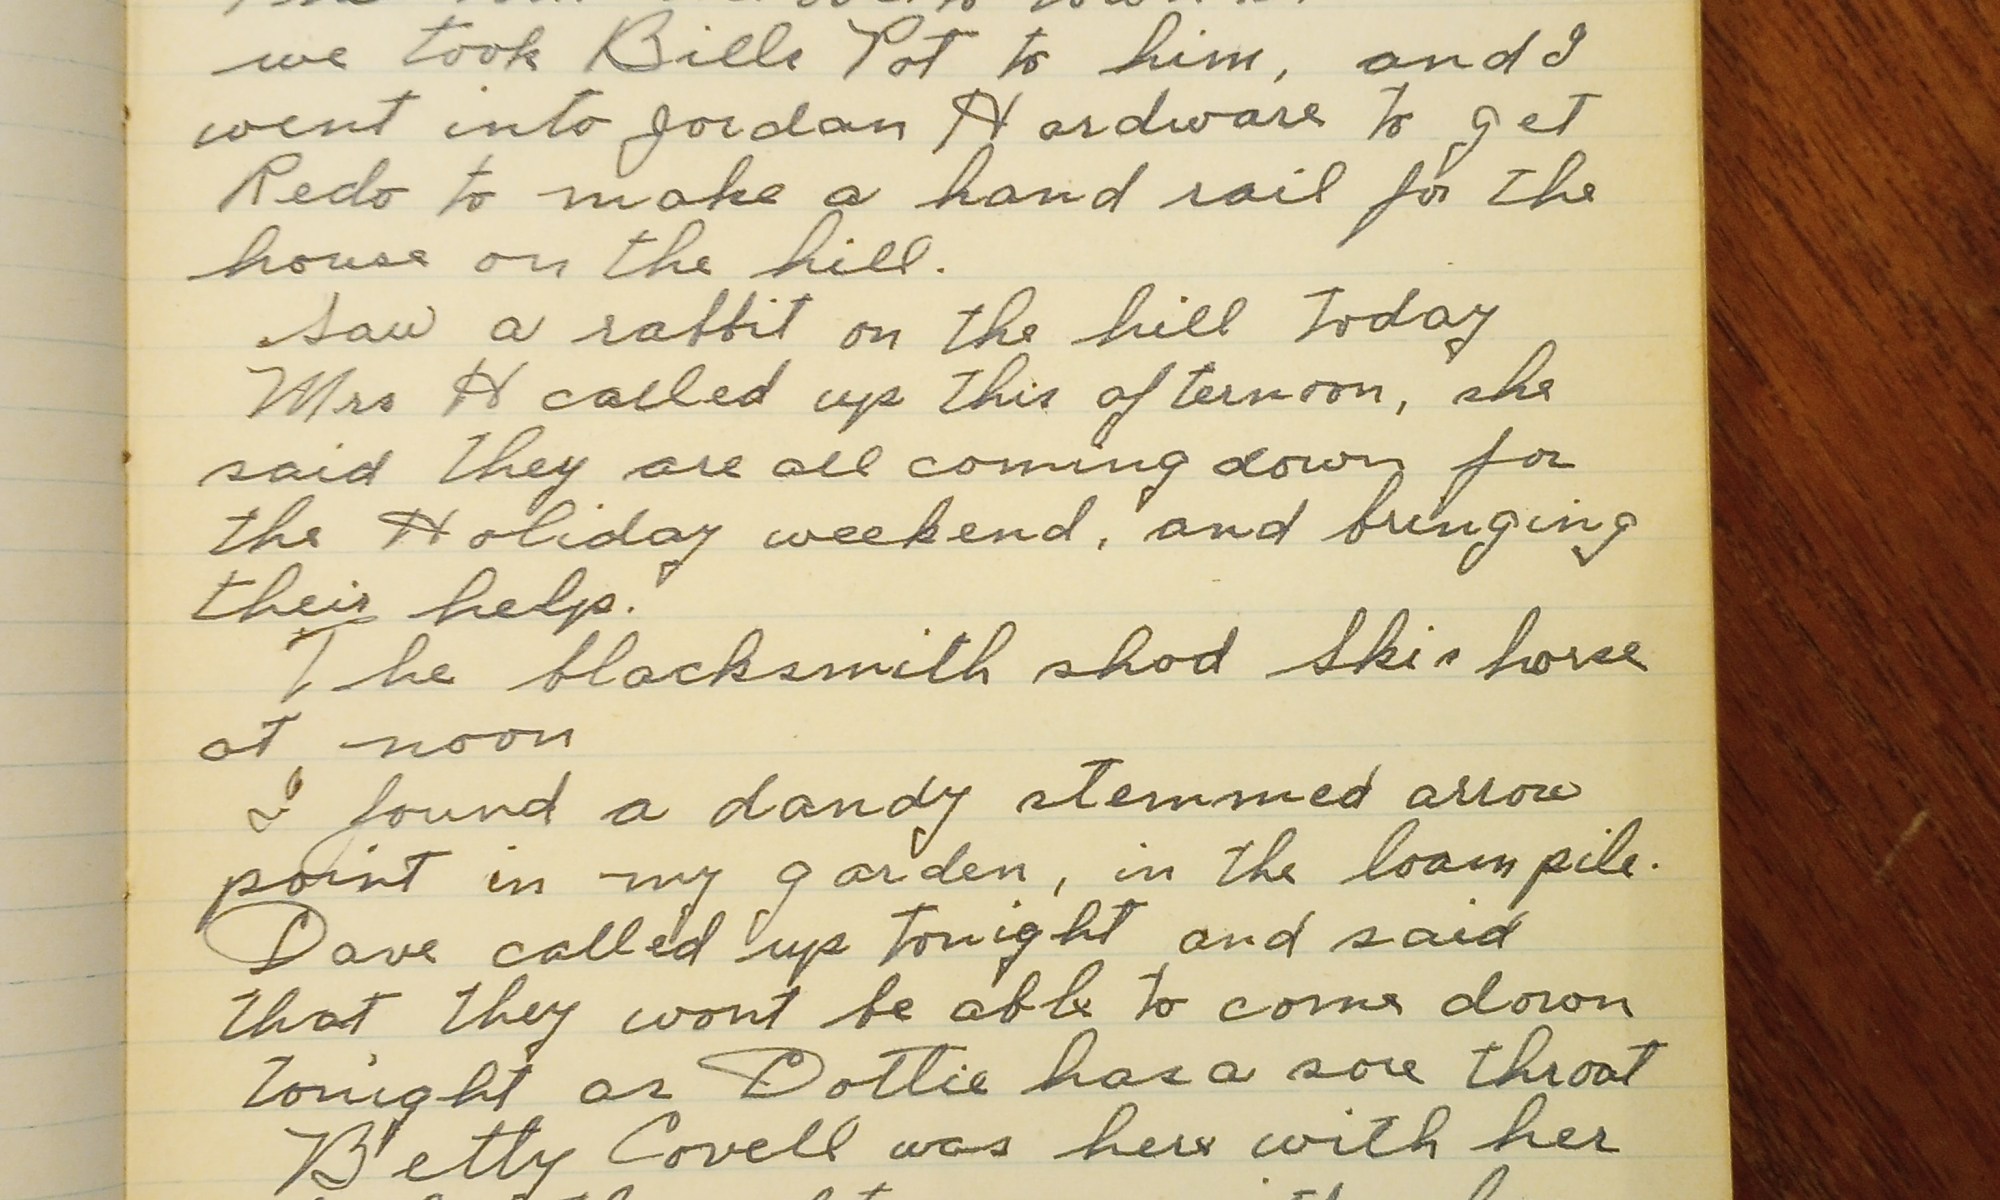 we took Bills Pot to him, and I
went into Jordan Hardware to get
Redo to make a hand rail for the
house on the hill.
Saw a rabbit on the hill today
Mrs H called up this afternoon, she
said they are all coming down for
the Holiday weekend, and bringing
their help.
The blacksmith shod Skis horse
at noon
I found a dandy stemmed arrow
point in my garden, in the loam pile.
Dave called up tonight and said
that they wont be able to come down
tonight as Dottie has a sore throat
Betty Covell was here with her